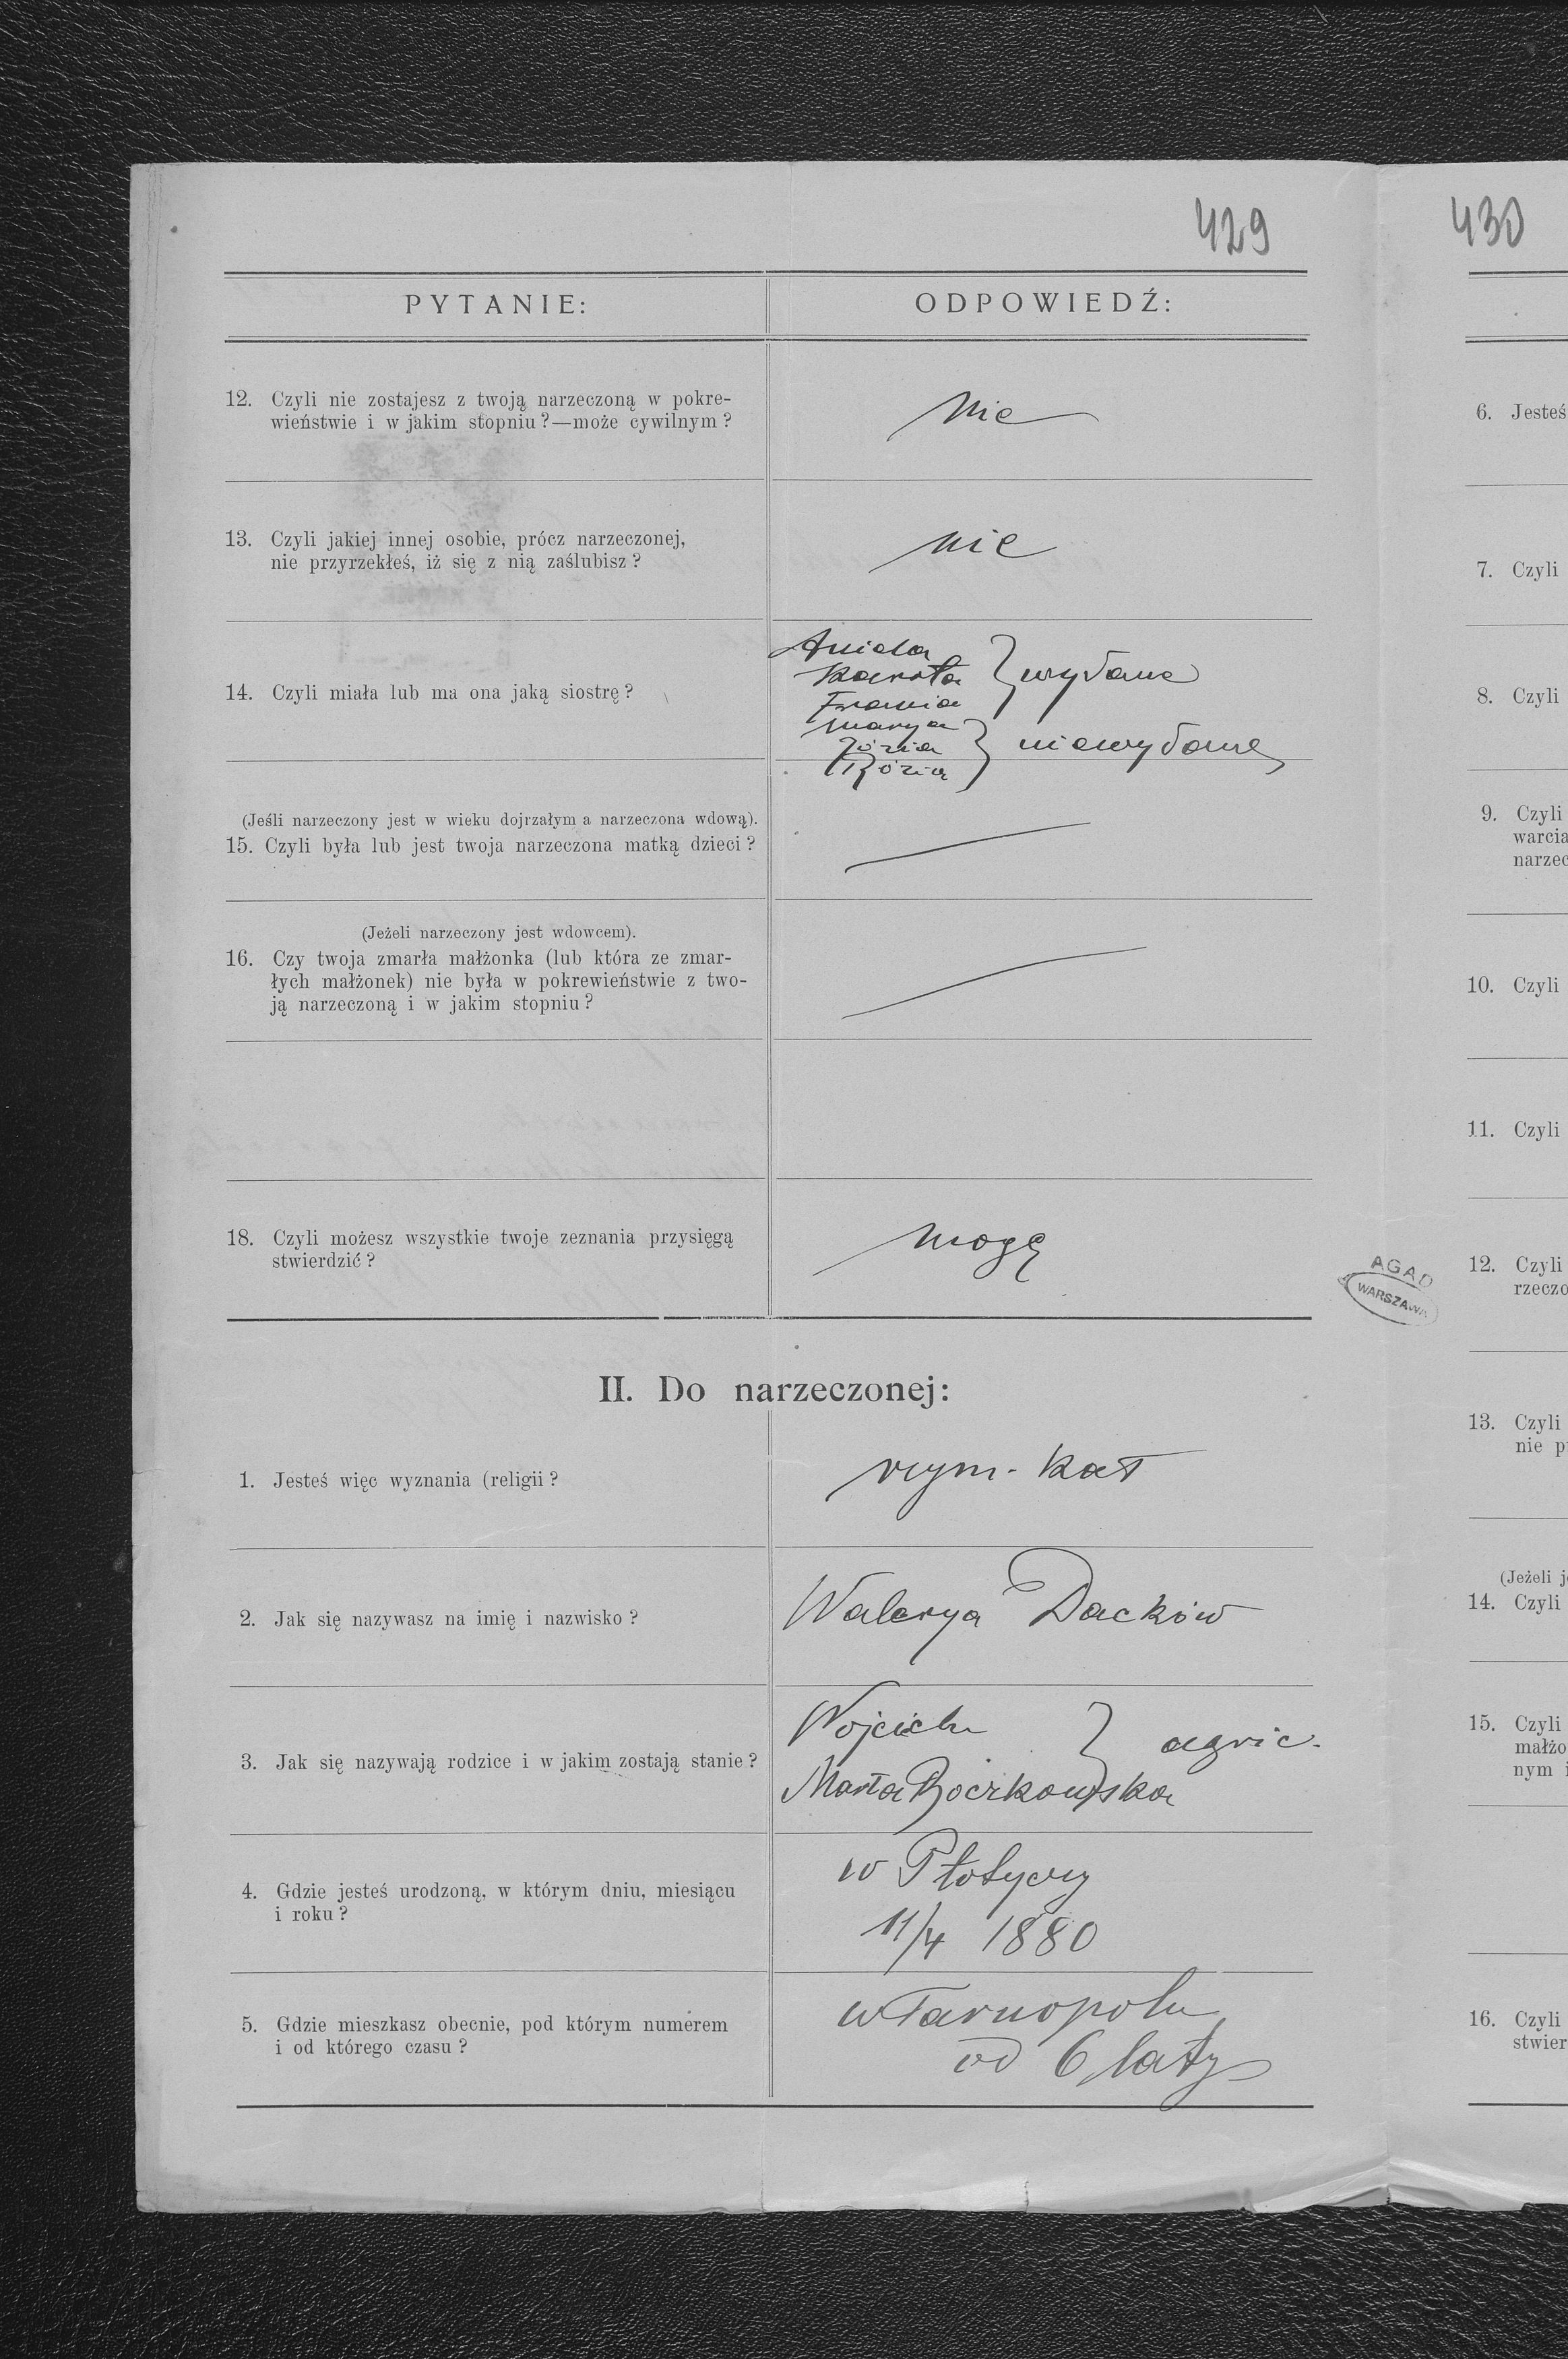 429
PYTANIE:
ODPOWIEDŹ:
12. Czyli nie zostajesz z twoją narzeczoną w pokre-
wieństwie i w jakim stopniu?—może cywilnym?
nie
13. Czyli jakiej innej osobie, prócz narzeczonej,
nie przyrzekłeś, iż się z nią zaślubisz?
nie
14. Czyli miała lub ma ona jaką siostrę?
Aniela
Karola
Frania
} wydane
Marya
Józia
Rózia
} niewydane
(Jeśli narzeczony jest w wieku dojrzałym a narzeczona wdową).
15. Czyli była lub jest twoja narzeczona matką dzieci?
(Jeżeli narzeczony jest wdowcem).
16. Czy twoja zmarła małżonka (lub która ze zmar-
łych małżonek) nie była w pokrewieństwie z two-
ją narzeczoną i w jakim stopniu?
18. Czyli możesz wszystkie twoje zeznania przysięgą
stwierdzić?
mogę
II. Do narzeczonej:
1. Jesteś więc wyznania (religii?
rzym-kat
2. Jak się nazywasz na imię i nazwisko?
Walerya Dacków
3. Jak się nazywają rodzice i w jakim zostają stanie?
Wojciech
Marta Boczkowska
} agric.
4. Gdzie jesteś urodzoną, w którym dniu, miesiącu
i roku?
w Płotyczy
11/4 1880
5. Gdzie mieszkasz obecnie, pod którym numerem
i od którego czasu?
w Tarnopolu
od 6 laty
AGAD
WARSZAWA
430
6. Jesteś
7. Czyli
8. Czyli
9. Czyli
warcia
narzec
10. Czyli
11. Czyli
12. Czyli
rzeczo
13. Czyli
nie p
(Jeżeli j
14. Czyli
15. Czyli
małżo
nym i
16. Czyli
stwier